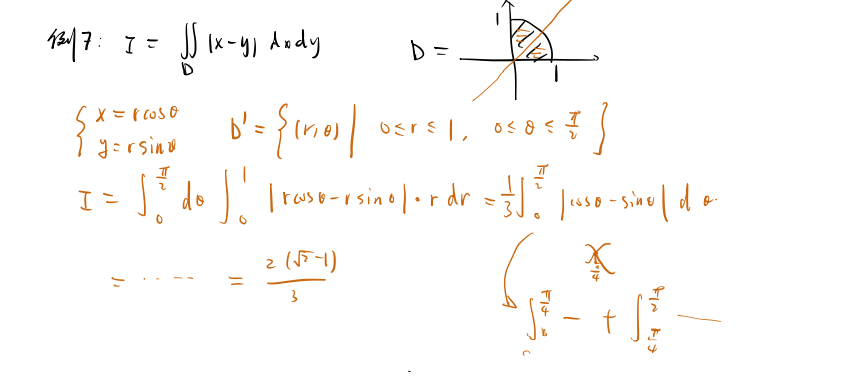 例7: I = ∬_D |x-y| dxdy D =
1
1
{ x = rcosθ
y = rsinθ
D' = { (r,θ) | 0≤r≤1, 0≤θ≤π/2 }
I = ∫_0^{π/2} dθ ∫_0^1 |rcosθ-rsinθ|·r dr = 1/3 ∫_0^{π/2} |cosθ-sinθ| dθ.
= ····· = 2(√2-1)/3
π/4
∫_0^{π/4} — + ∫_{π/4}^{π/2} —